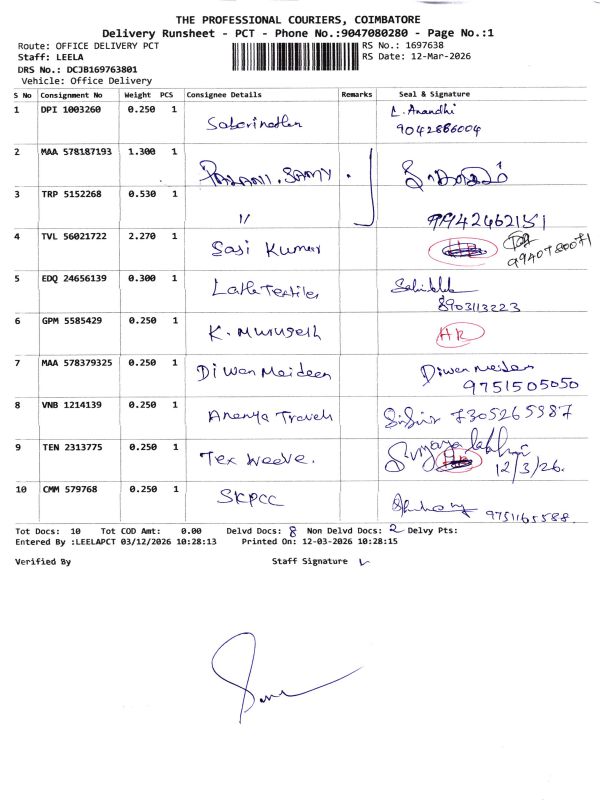 THE PROFESSIONAL COURIERS, COIMBATORE
Delivery Runsheet - PCT - Phone No.:9047080280 - Page No.:1
Route: OFFICE DELIVERY PCT
RS No.: 1697638
Staff: LEELA
RS Date: 12-Mar-2026
DRS No.: DCJB169763801
Vehicle: Office Delivery
S No Consignment No Weight PCS Consignee Details Remarks Seal & Signature
1 DPI 1003260 0.250 1 L. Anandhi
9042886004
2 MAA 578187193 1.300 1 PALANI.SAMY.
3 TRP 5152268 0.530 1 " 9942462151
4 TVL 56021722 2.270 1 Sasi Kumar
5 EDQ 24656139 0.300 1 8903113223
6 GPM 5585429 0.250 1 HR
7 MAA 578379325 1 Diwan Maideen Diwan Maideen
0.250 9751505050
8 VNB 1214139 0.250 1 Ananya Travels 7305265987
9 TEN 2313775 0.250 1 Tex Weave. 12/3/26.
10 CMM 579768 0.250 1 SKPCC 9751165588.
Tot Docs: 10 Tot COD Amt: 0.00 Delvd Docs: 8 Non Delvd Docs: 2 Delvy Pts:
Entered By :LEELAPCT 03/12/2026 10:28:13 Printed On: 12-03-2026 10:28:15
Verified By Staff Signature